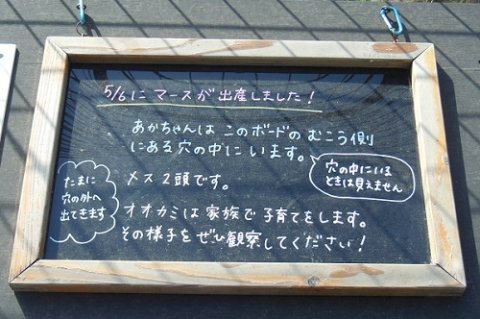 5/6に マースが出産しました！
あかちゃんは このボードの むこう側
にある穴の中にいます。
穴の中にいる
ときは見えません
たまに
穴の外へ
出てきます
メス2頭です。
オオカミは家族で子育てをします。
その様子をぜひ観察してください！